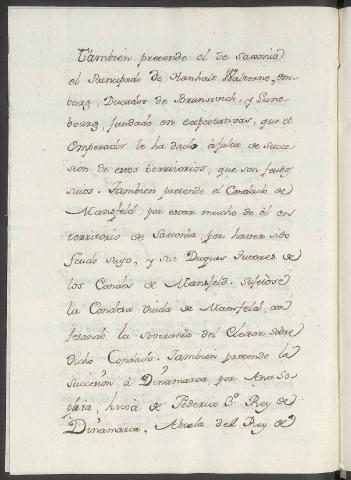 También pretende el de Saxonia
el Principado de Hanhalt Walterne,em-
burg, Ducados de Brunsvich, y Lune-
bourg, fundado en expectativas, que el
Emperador le ha dado à falta de succe-
sion de estos territorios, que son feudos
suios. Tambien pretende el Condado de
Mansfeld por estar mucho de él en
territorio de Saxonia, por haver sido
feudo suyo, y sus Duques tutores de
los Condes de Mansfeld. Sujetose
la Condesa viuda de Mansfeld, con
fesando la soverania del Elector sobre
dicho Condado. Tambien pretende la
Succesion à Dinamarca, por Ana So-
phia, hixa de Federico 3º Rey de
Dinamarca, Abuela del Rey de